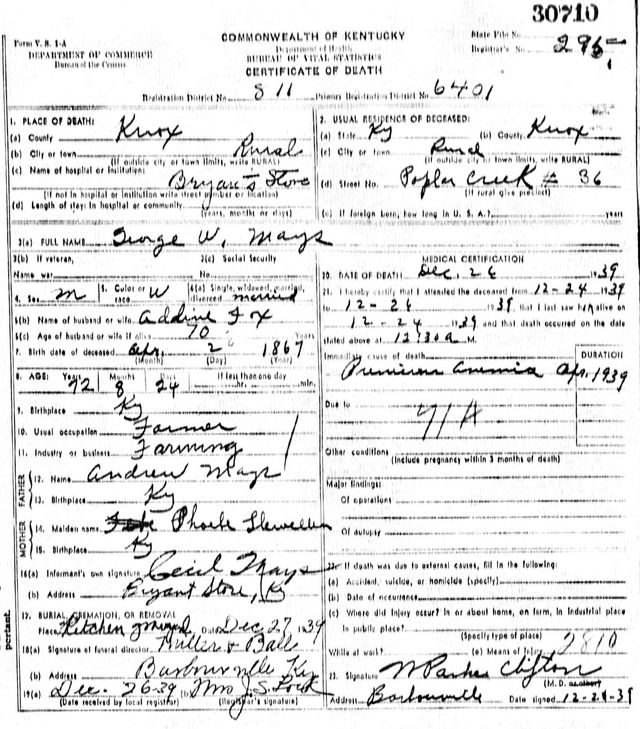 30710
COMMONWEALTH OF KENTUCKY
Form V. S. 1-A
Department of Health
State File No.
DEPARTMENT OF COMMERCE
BUREAU OF VITAL STATISTICS
Registrar's No. 295
Bureau of the Census
CERTIFICATE OF DEATH
Registration District No. 811 Primary Registration District No. 6401
1. PLACE OF DEATH:
(a) County Knox
(b) City or town Rural
(If outside city or town limits, write RURAL)
(c) Name of hospital or institution:
Bryan's Store
(If not in hospital or institution write street number or location)
(d) Length of stay: In hospital or community
(years, months or days)
2. USUAL RESIDENCE OF DECEASED:
(a) State Ky (b) County Knox
(c) City or town Rural
(If outside city or town limits, write RURAL)
(d) Street No. Poplar Creek # 36
(If rural give precinct)
(e) If foreign born, how long in U. S. A.? years
3(a) FULL NAME George W. Mays
3(b) If veteran, 3(c) Social Security
Name war No.
4. Sex M 5. Color or race W 6(a) Single, widowed, married, divorced married
6(b) Name of husband or wife Addine Fox
6(c) Age of husband or wife if alive 70 Years
7. Birth date of deceased Apr. 2 1867
(Month) (Day) (Year)
8. AGE: Years Months Days If less than one day
72 8 24 hr. min.
9. Birthplace Ky
10. Usual occupation Farmer
11. Industry or business Farming
FATHER
12. Name Andrew Mays
13. Birthplace Ky
MOTHER
14. Maiden name Phoebe Llewellen
15. Birthplace Ky
16(a) Informant's own signature Cecil Mays
(b) Address Bryant Store, Ky
17. BURIAL, CREMATION, OR REMOVAL
Place Ketchen graveyard Date Dec 27 1939
18(a) Signature of funeral director Miller & Ball
(b) Address Barbourville Ky
19(a) Dec. 26-39 (b) Mrs J. S. Lock
(Date received by local registrar) (Registrar's signature)
pertant.
MEDICAL CERTIFICATION
20. DATE OF DEATH Dec. 26 1939
21. I hereby certify that I attended the deceased from 12-24 1939
to 12-26 1939, that I last saw h/m alive on
12-24 1939 and that death occurred on the date
stated above at 12:30 a M.
Immediate cause of death DURATION
anemia Apr. 1939
Due to
71A
Other conditions
(Include pregnancy within 3 months of death)
Major findings:
Of operations
Of autopsy
22. If death was due to external causes, fill in the following:
(a) Accident, suicide, or homicide (specify)
(b) Date of occurrence
(c) Where did injury occur? In or about home, on farm, in industrial place
in public place?
(Specify type of place)
While at work? (e) Means of injury 2810
23. Signature W Parker Clifton
(M.D. or other)
Address Barbourville Date signed 12-28-39